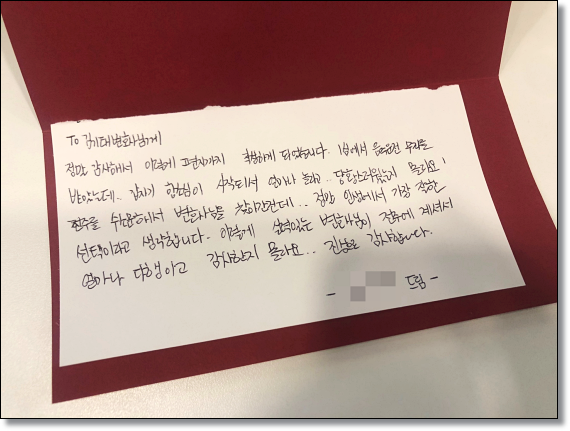 To 김태변호사님께
정말 감사해서 이렇게 편지까지 작성하게 되었습니다. 1심에서 음주운전 무죄를
받았는데.. 갑자기 항소심이 시작되서 얼마나 놀라고 당황스러웠는지 몰라요!
전주를 뒤져서 변호사님을 찾아간건데.. 정말 인생에서 가장 잘한
선택이라고 생각합니다. 이렇게 실력있는 변호사님이 전주에 계셔서
얼마나 다행이고 감사한지 몰라요.. 진심으로 감사합니다.
- 드림 -